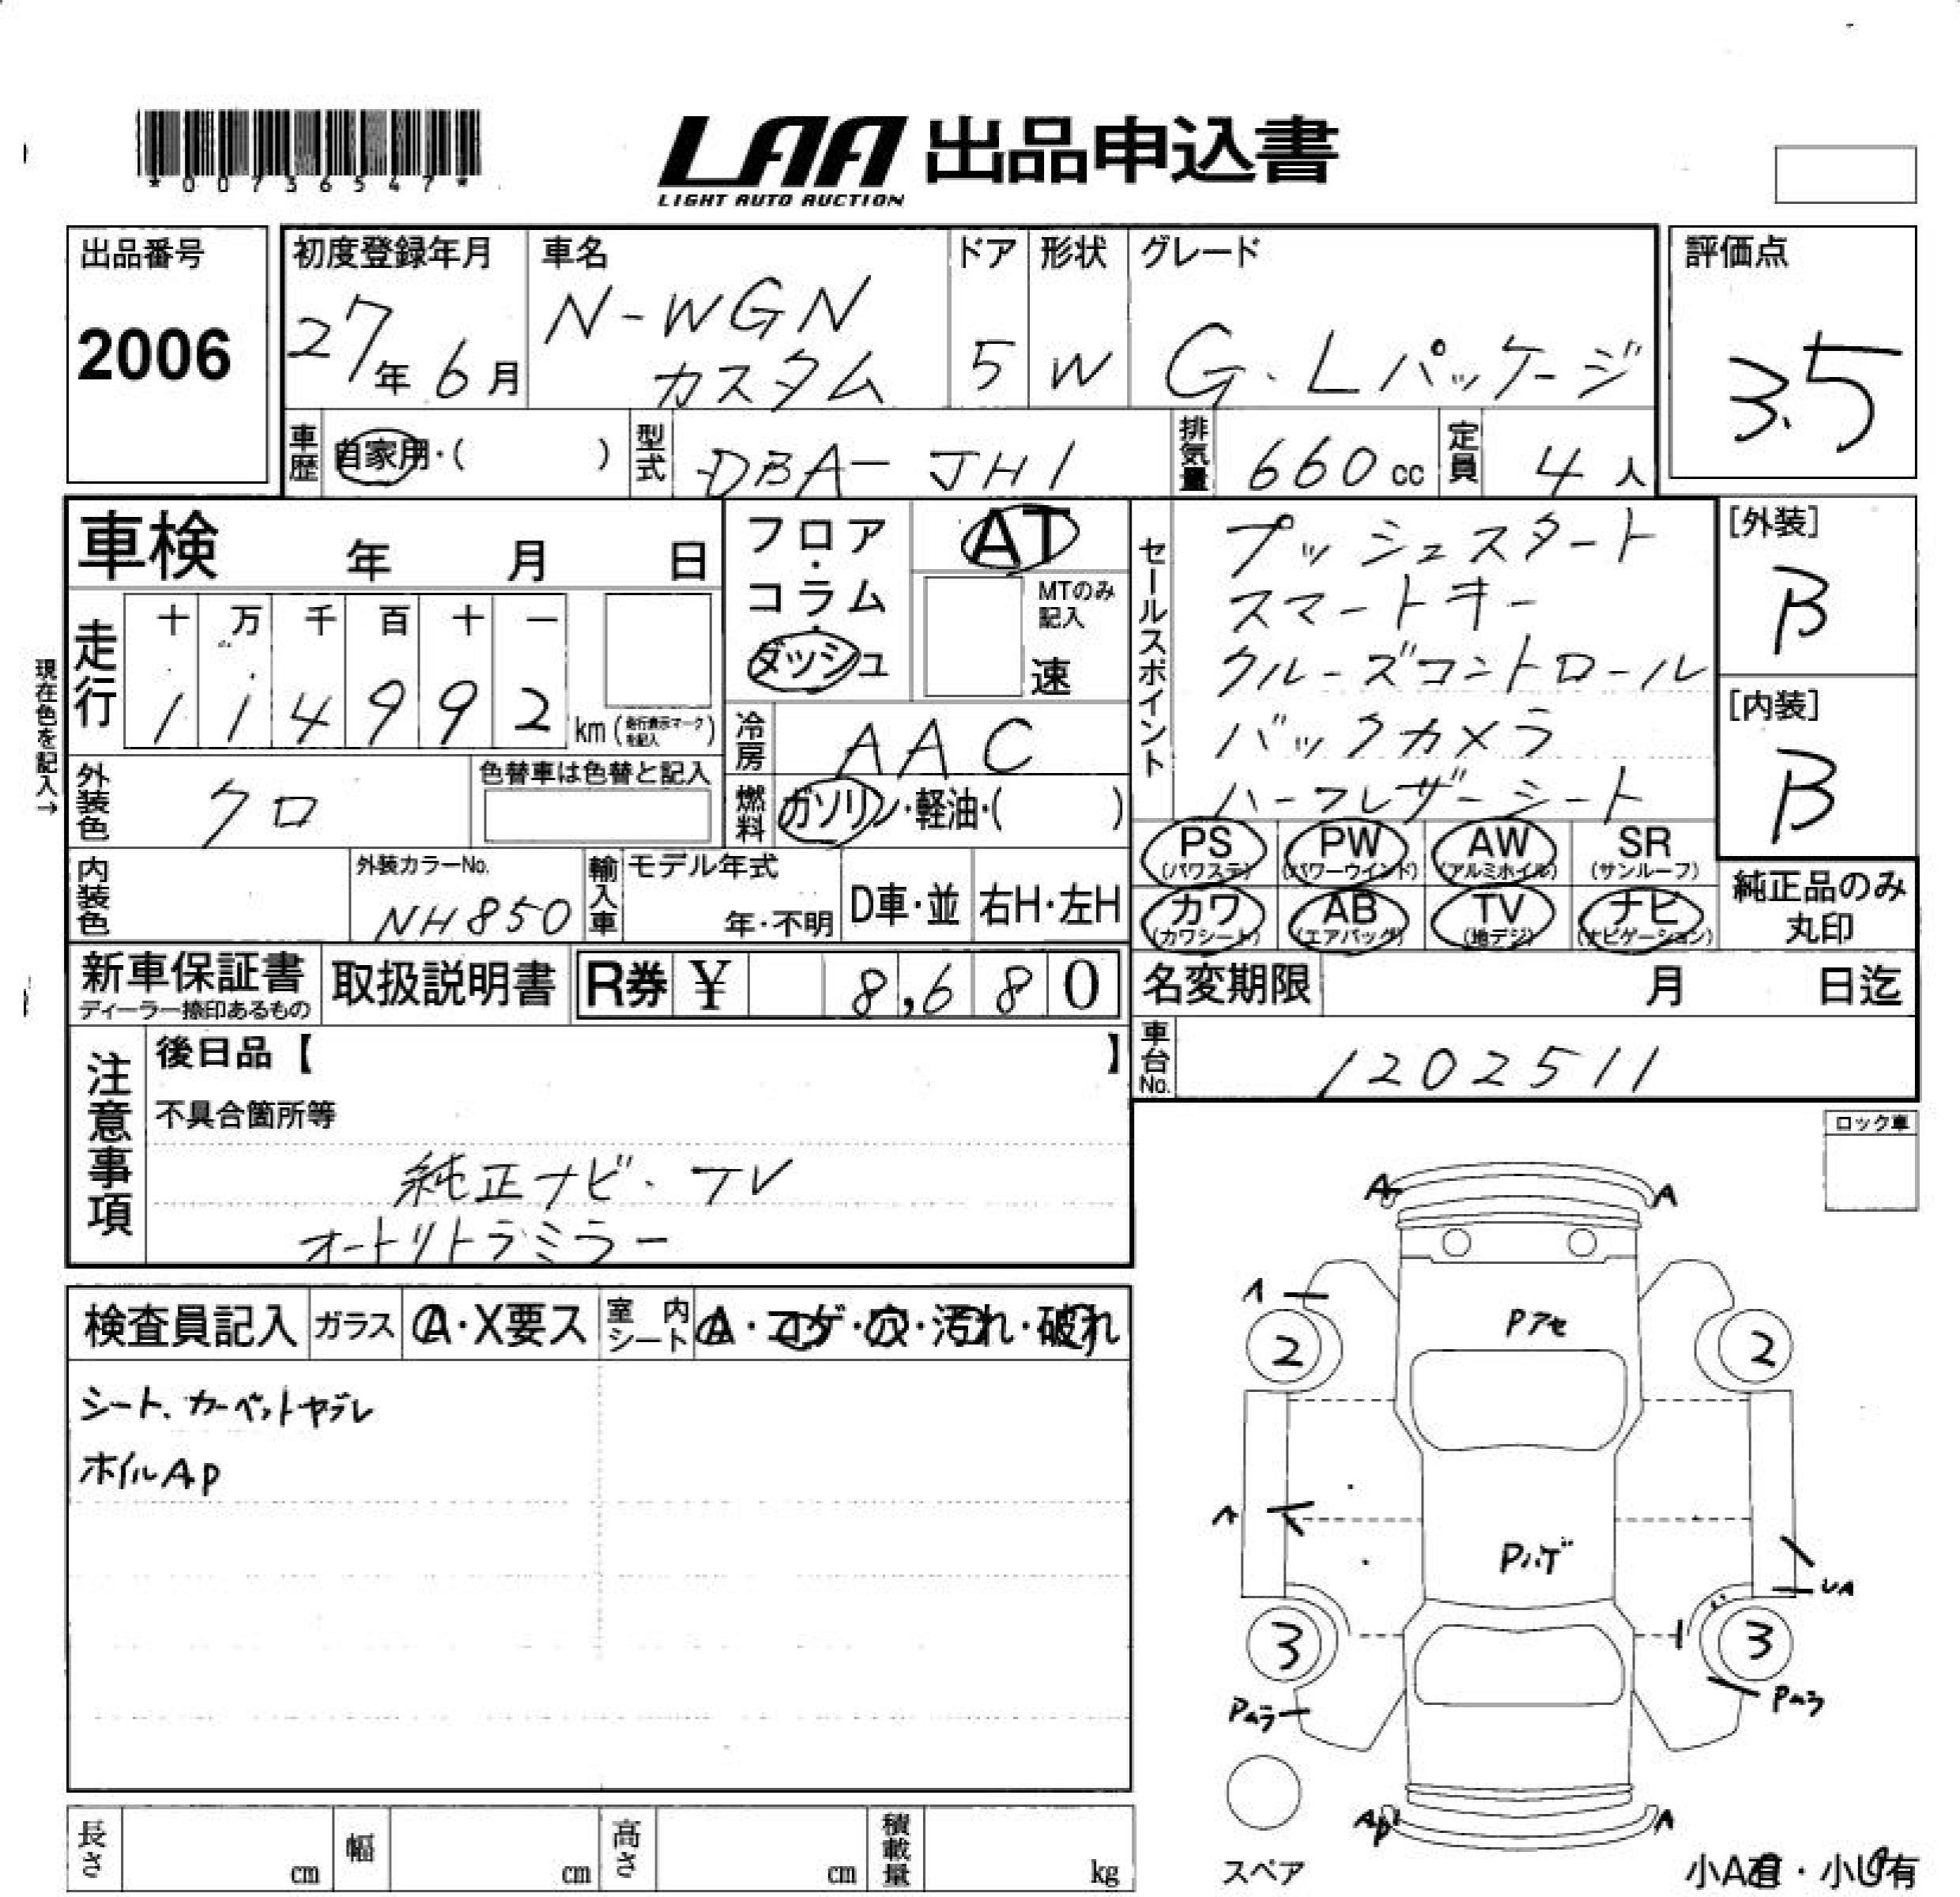 *00736547*
LAA 出品申込書
LIGHT AUTO AUCTION
出品番号
2006
初度登録年月
27年6月
車名
N-WGN
カスタム
ドア
5
形状
W
グレード
G・Lパッケージ
評価点
3.5
車歴
自家用・( )
型式
DBA-JH1
排気量
660cc
定員
4人
車検 年 月 日
フロア・コラム・ダッシュ
AT
MTのみ記入
速
セールスポイント
プッシュスタート
スマートキー
クルーズコントロール
バックカメラ
ハーフレザーシート
[外装]
B
[内装]
B
現在色を記入→
走行
十 万 千 百 十 一
1 1 4 9 9 2
km (走行表示マークを記入)
冷房
AAC
燃料
ガソリン・軽油・( )
外装色
クロ
色替車は色替と記入
内装色
外装カラーNo.
NH850
輸入車
モデル年式
年・不明
D車・並
右H・左H
PS (パワステ)
PW (パワーウインド)
AW (アルミホイル)
SR (サンルーフ)
カワ (カワシート)
AB (エアバッグ)
TV (地デジ)
ナビ (ナビゲーション)
純正品のみ
丸印
新車保証書
ディーラー捺印あるもの
取扱説明書
R券 ¥ 8,680
名変期限 月 日迄
車台No.
1202511
注意事項
後日品【 】
不具合箇所等
純正ナビ・テレ
オートリトラミラー
ロック車
検査員記入
ガラス
A・X要ス
室内シート
A・コゲ・穴・汚れ・破れ
シート、カーペットヤブレ
ホイルAP
A A
A
Pアセ
2 2
A
Pハゲ
UA
3 3
Pムラ Pムラ
AP A
スペア
小A有・小U有
長さ cm
幅 cm
高さ cm
積載量 kg